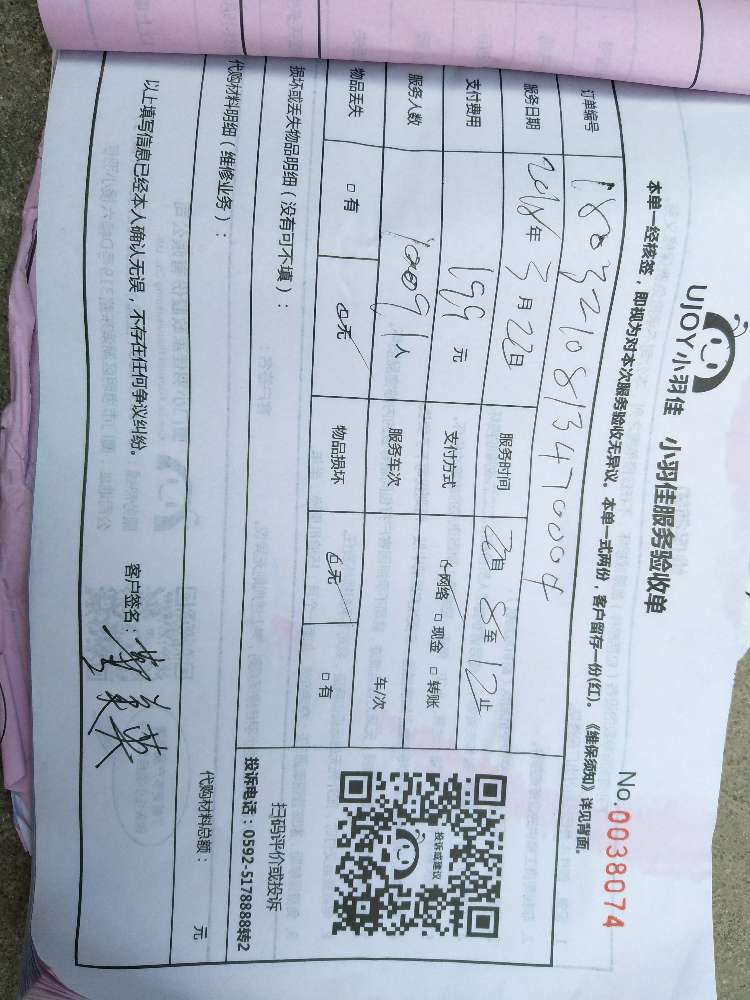 UJOY小羽佳 小羽佳服务验收单
No.0038074
本单一经核签，即视为对本次服务验收无异议。本单一式两份，客户留存一份(红)。《维保须知》详见背面。
订单编号 1803210813470004
服务日期 2018年3月22日 服务时间 8至12止
支付费用 199元 支付方式 网络 □现金 □转账
服务人数 1人 服务车次 车/次
物品丢失 □有 □无 物品损坏 □无 □有
损坏或丢失物品明细（没有可不填）：
投诉或建议
扫码评价或投诉
投诉电话：0592-5178888转2
代购材料明细（维修业务）： 代购材料总额： 元
以上填写信息已经本人确认无误，不存在任何争议纠纷。 客户签名：